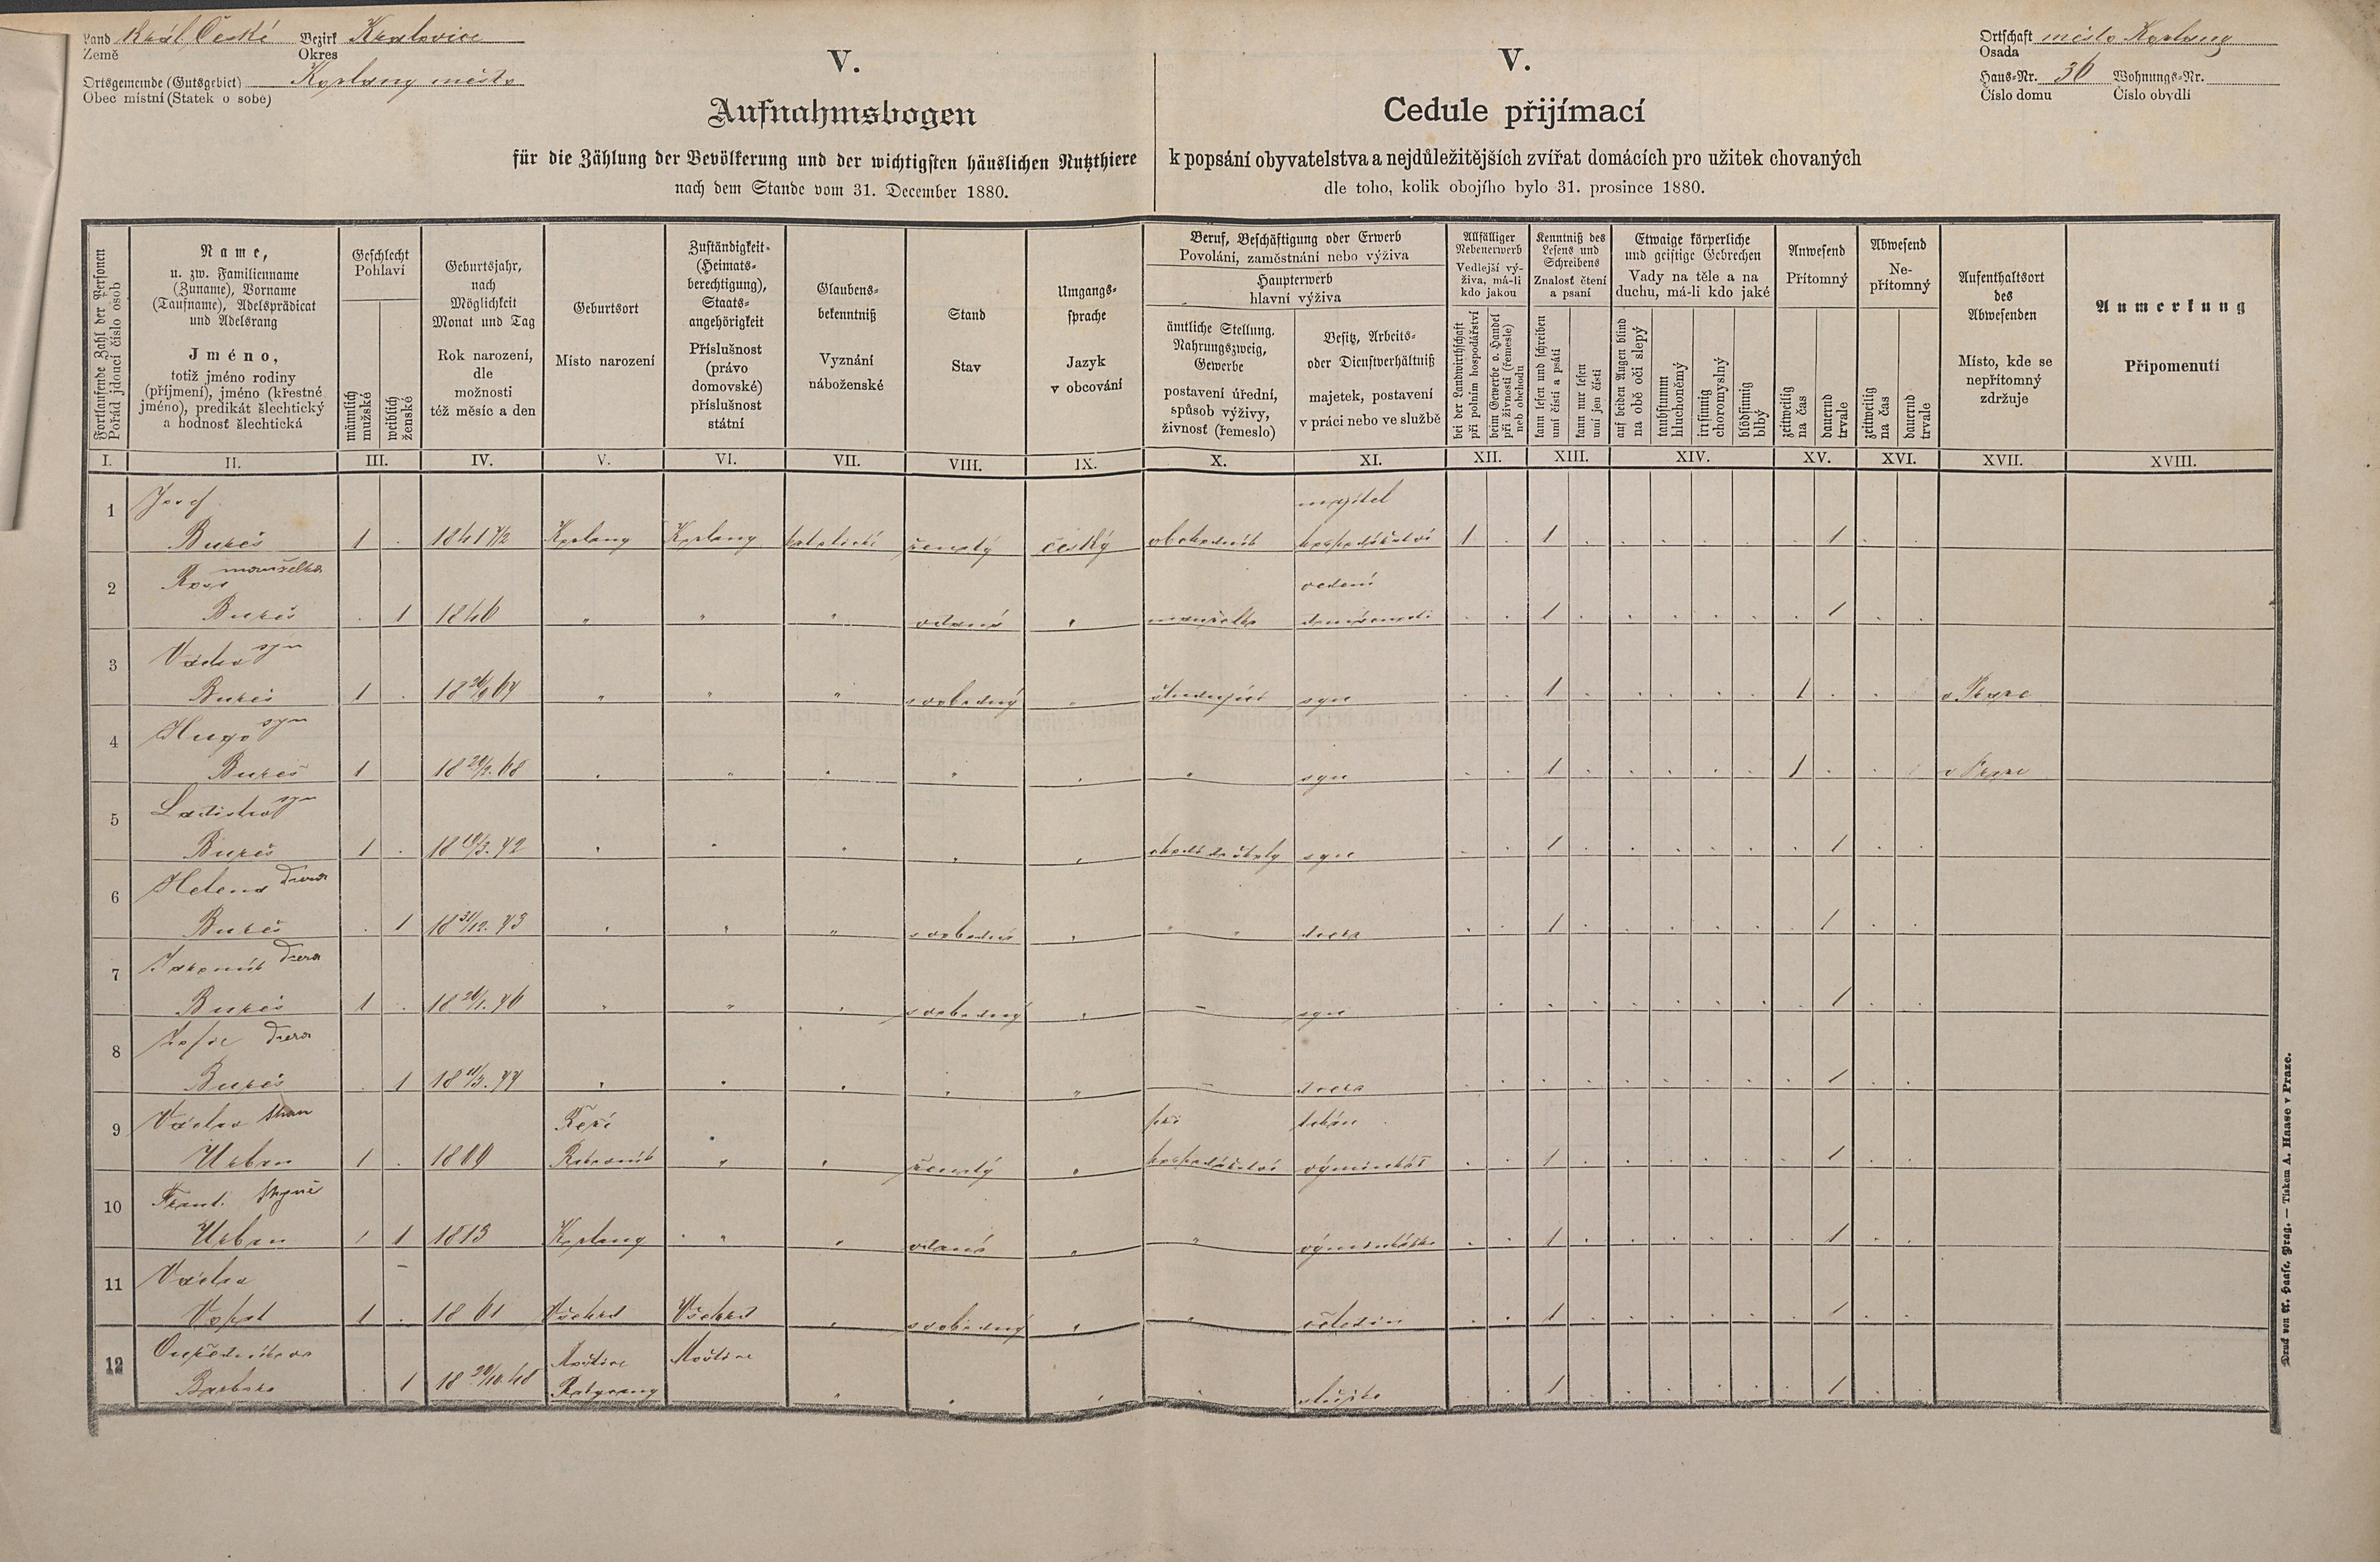 Land Král. České Bezirk Kralovice
Země Okres
Ortsgemeinde (Gutsgebiet) Kožlany město
Obec místní (Statek o sobě)
Ortschaft město Kožlany
Osada
Haus-Nr. 36 Wohnungs-Nr.
Číslo domu Číslo obydlí
V.
Aufnahmsbogen
für die Zählung der Bevölkerung und der wichtigsten häuslichen Nutzthiere
nach dem Stande vom 31. December 1880.
V.
Cedule přijímací
k popsání obyvatelstva a nejdůležitějších zvířat domácích pro užitek chovaných
dle toho, kolik obojího bylo 31. prosince 1880.
Fortlaufende Zahl der Personen
Pořád jdoucí číslo osob
Name,
u. zw. Familienname
(Zuname), Vorname
(Taufname), Adelsprädicat
und Adelsrang
Jméno,
totiž jméno rodiny
(příjmení), jméno (křestné
jméno), predikát šlechtický
a hodnosť šlechtická
Geschlecht
Pohlaví
männlich
mužské
weiblich
ženské
Geburtsjahr,
nach
Möglichkeit
Monat und Tag
Rok narození,
dle
možnosti
též měsíc a den
Geburtsort
Místo narození
Zuständigkeit-
(Heimats-
berechtigung),
Staats-
angehörigkeit
Příslušnost
(právo
domovské)
příslušnost
státní
Glaubens-
bekenntniß
Vyznání
náboženské
Stand
Stav
Umgangs-
sprache
Jazyk
v obcování
Beruf, Beschäftigung oder Erwerb
Povolání, zaměstnání nebo výživa
Haupterwerb
hlavní výživa
ämtliche Stellung,
Nahrungszweig,
Gewerbe
postavení úřední,
spůsob výživy,
živnosť (řemeslo)
Besitz, Arbeits-
oder Dienstverhältniß
majetek, postavení
v práci nebo ve službě
Allfälliger
Nebenerwerb
Vedlejší vý-
živa, má-li
kdo jakou
bei der Landwirthschaft
při polním hospodářství
beim Gewerbe o. Handel
při živnosti (řemesle)
neb obchodu
Kenntniß des
Lesens und
Schreibens
Znalosť čtení
a psaní
kann lesen und schreiben
umí čísti a psáti
kann nur lesen
umí jen čísti
Etwaige körperliche
und geistige Gebrechen
Vady na těle a na
duchu, má-li kdo jaké
auf beiden Augen blind
na obě oči slepý
taubstumm
hluchoněmý
irrsinnig
choromyslný
blödsinnig
blbý
Anwesend
Přítomný
zeitweilig
na čas
dauernd
trvale
Abwesend
Ne-
přítomný
zeitweilig
na čas
dauernd
trvale
Aufenthaltsort
des
Abwesenden
Místo, kde se
nepřítomný
zdržuje
Anmerkung
Připomenutí
I. II. III. IV. V. VI. VII. VIII. IX. X. XI. XII. XIII. XIV. XV. XVI. XVII. XVIII.
1 Josef majitel
Bureš 1 . 1841 Kožlany Kožlany katolické ženatý český obchodník hospodářství 1 . 1 . . . . . . 1 . .
2 Rosa manželka vedení
Bureš . 1 1846 " " " vdaná " manželka domácnosti . . 1 . . . . . . 1 . .
3 Václav syn
Bureš 1 . 18 " " " svobodný " študující syn . . 1 . . . . . 1 . . v Praze
4 Hugo syn
Bureš 1 18 68 " " " " " " syn . . 1 . . . . . 1 . . v Praze
5 Ladislav syn
Bureš 1 . 18 /3. 72 " " " " " chodí do školy syn . . 1 . . . . . . 1 . .
6 Helena dcera
Bureš . 1 18 31/12. 73 " " " svobodná " " " dcera . . 1 . . . . . . 1 . .
7 Jaromír dcera
Bureš 1 . 18 /1. 76 " " " svobodný " – syn . . . . . . . . . 1 . .
8 Žofie dcera
Bureš . 1 18 /3. 77 " " " " " – dcera . . . . . . . . . 1 . .
9 Václav tchán
Urban 1 . 1809 Rakovník " " ženatý " hospodářství výminkář . . 1 . . . . . . 1 . .
při tchán
10 Frant. tchyně
Urban 1 1813 Kožlany " " vdaná " " výminkářka . . 1 . . . . . . 1 . .
11 Václav
Vopat 1 . 1861 Všehrd Všehrd " svobodný " " čeledín . . 1 . . . . . . 1 . .
12 Hoštice Hoštice
Barbora . 1 18 /10. 48 " " " " služka . . 1 . . . . . . 1 . .
Druck von A. Haase, Prag. — Tiskem A. Haase v Praze.